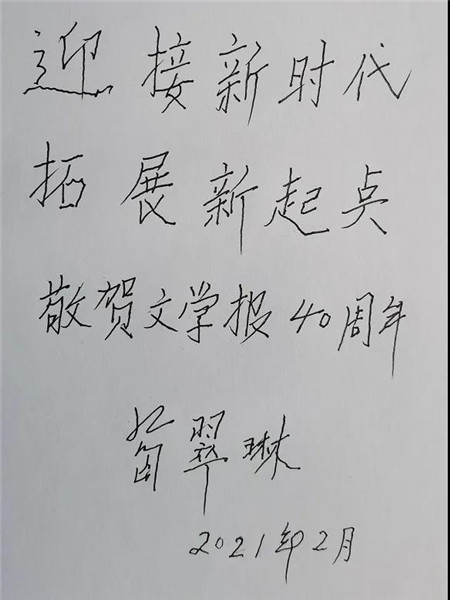 迎接新时代
拓展新起点
敬贺文学报40周年
葛翠琳
2021年2月